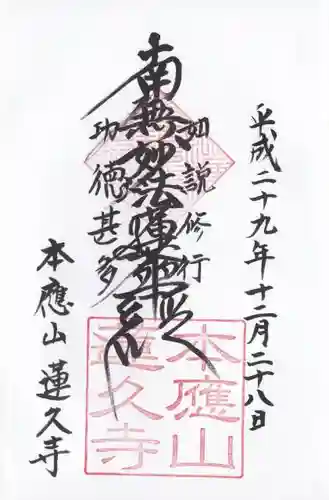 平成二十九年十二月二十八日
如説修行
南無妙法蓮華経
功徳甚多
本應山 蓮久寺
本應山
蓮久寺